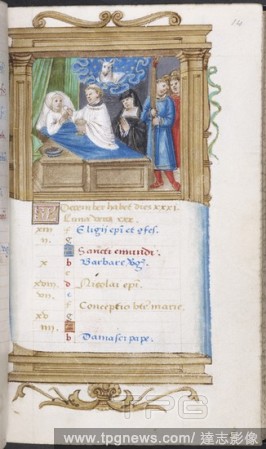 14
December habet dies xxxi.
Luna vero xxx.
xiii f Eligii epi et ofes.
g
Sancti emundi.
x b Barbare vg.
c
xviii d Nicolai epi.
vii e
f Conceptio bte marie.
xv g
iiii
b Damasci pape.
TPG
www.tpgnews.com / 達志影像